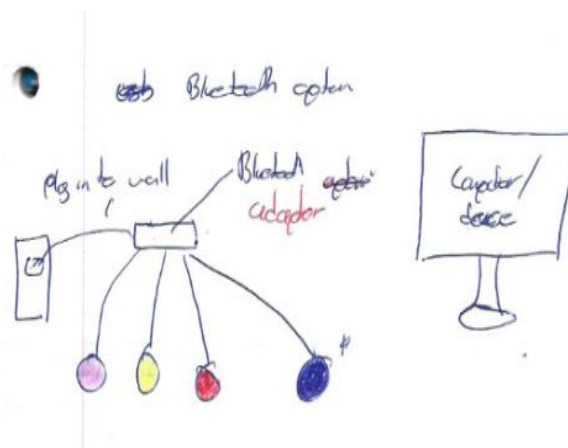 Bluetooth option
plug in to wall
Bluetooth
adaptor
Computer/
device